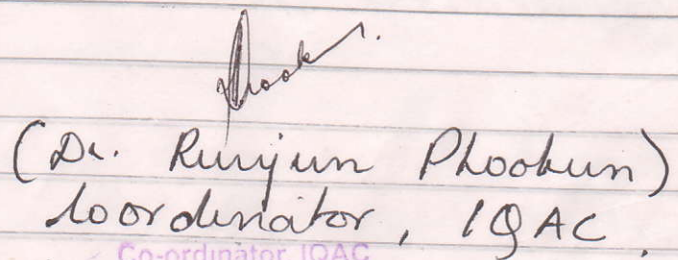 Phookun.
(Dr. Runjun Phookun)
Coordinator, IQAC.
Co-ordinator IQAC